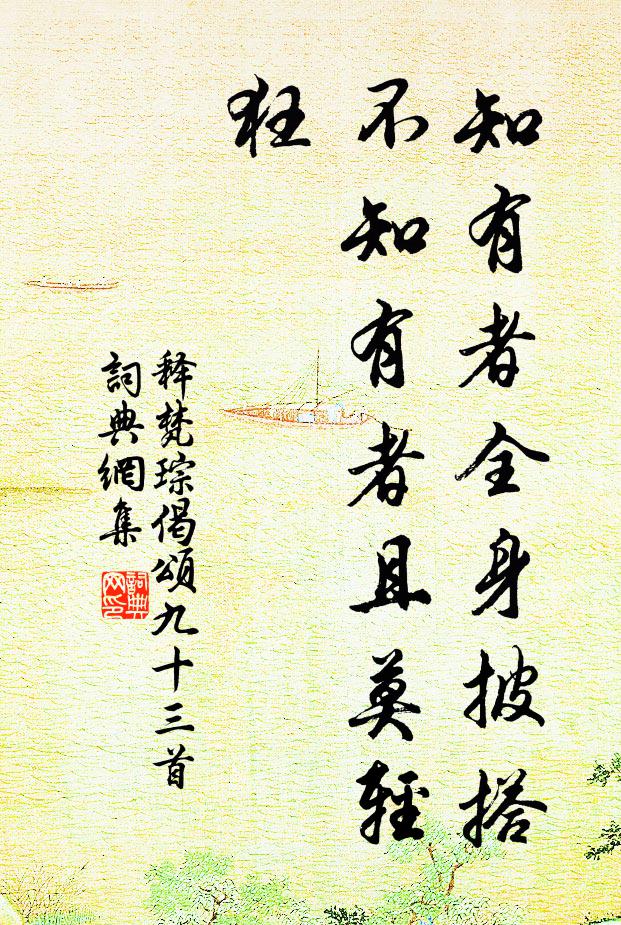 知有者全身披搭
不知有者且莫輕
狂
释梵琮偈頌九十三首
詞典網集
詞典网印